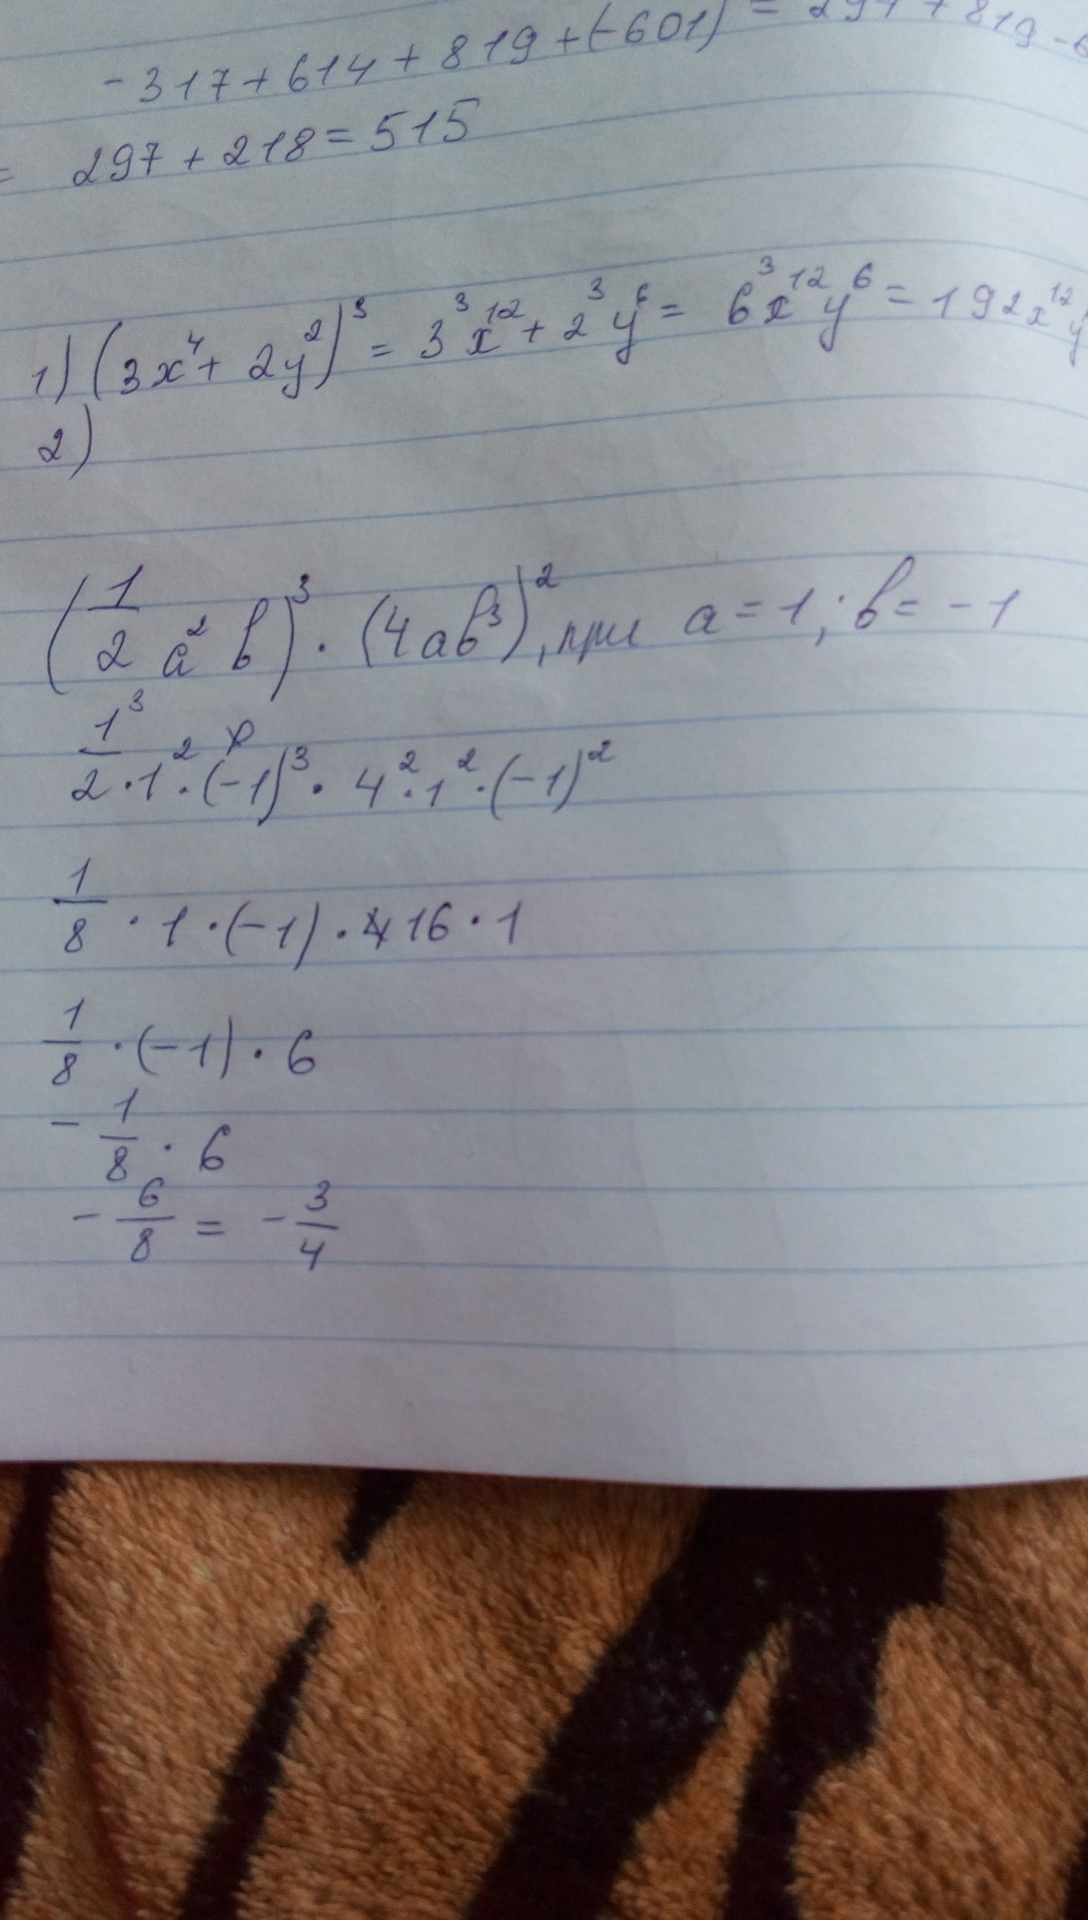 -317+614+819+(-601) = 297+819-6
= 297+218=515
1) (3x⁴+ 2y²)³ = 3³x¹²+2³y⁶ = 6³x¹²y⁶=192x¹²y
2)
(1/2 a² b)³ · (4ab³)², при a=1; b=-1
1³/2·1²·(-1)³· 4²·1²·(-1)²
1/8 · 1 ·(-1) · 16 · 1
1/8 ·(-1) · 6
- 1/8 · 6
- 6/8 = - 3/4